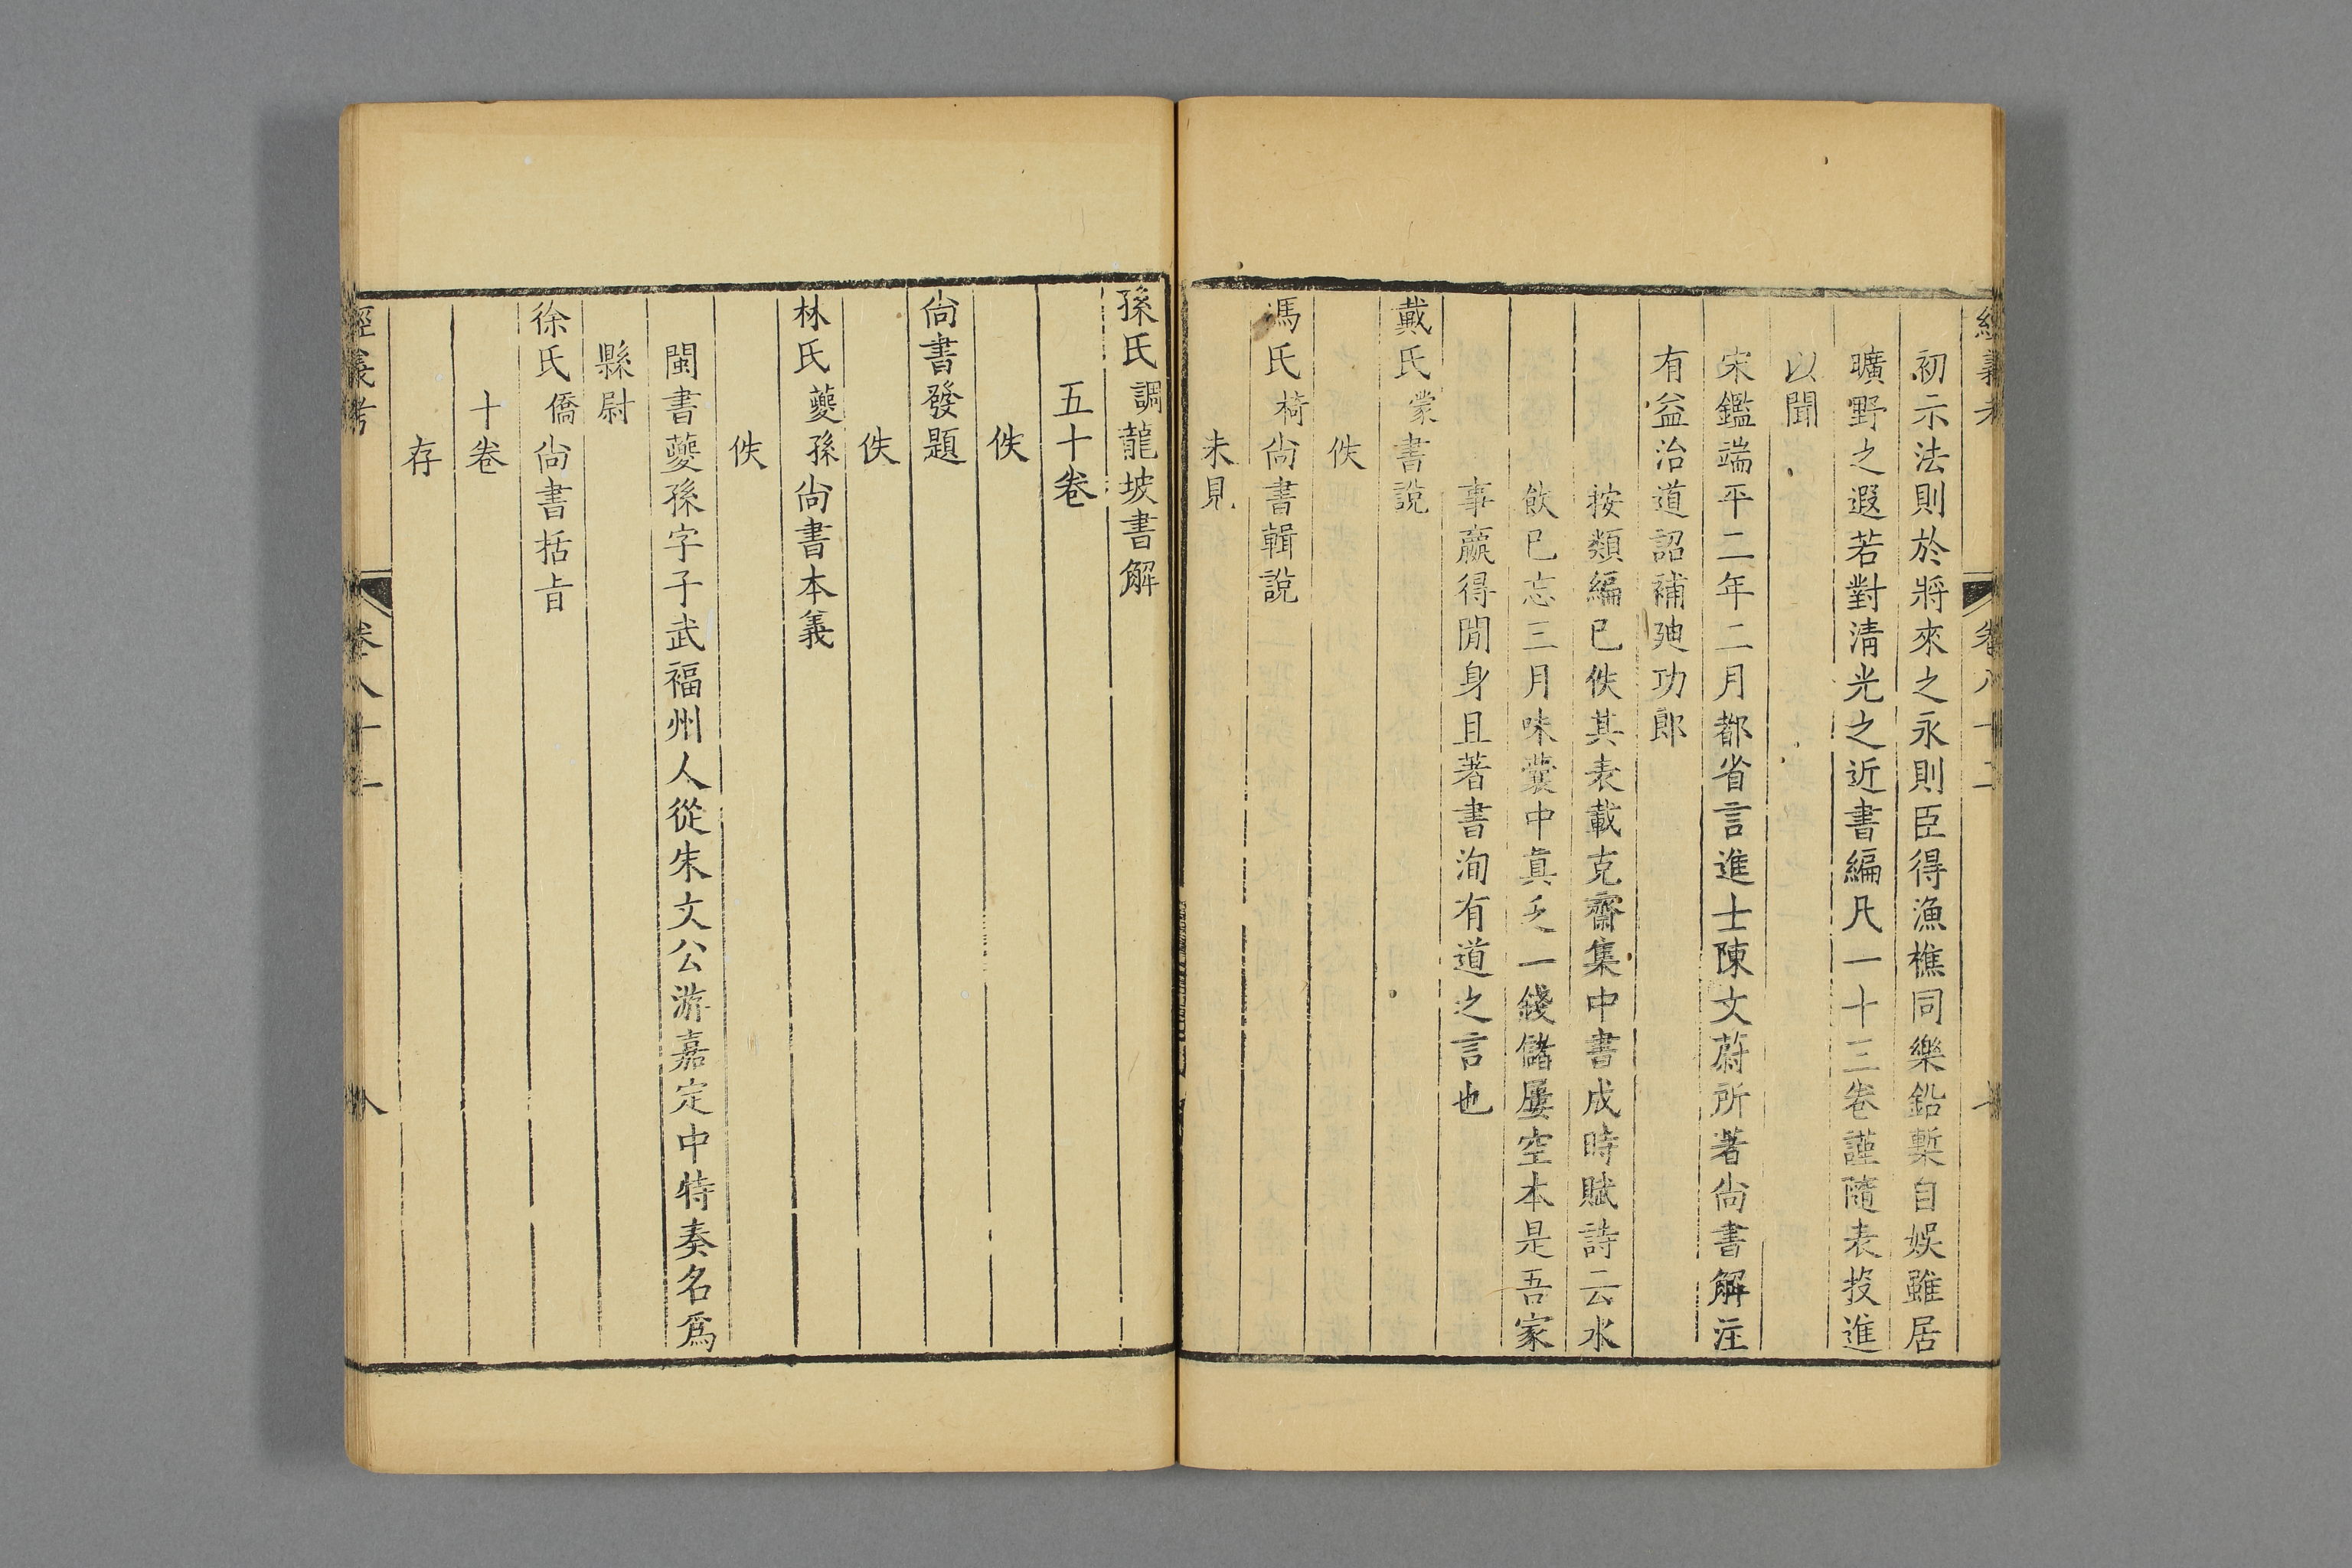 經義考 卷八十二
初示法則於將來之永則臣得漁樵同樂鉛槧自娛雖居
曠野之遐若對淸光之近書編凡一十三卷謹隨表投進
以聞
宋鑑端平二年二月都省言進士陳文蔚所著尙書解注
有益治道詔補廸功郎
按類編已佚其表載克齋集中書成時賦詩云水
飲已忘三月味囊中眞乏一錢儲屢空本是吾家
事贏得閒身且著書洵有道之言也
戴氏蒙書說
佚
馮氏椅尙書輯說
未見
孫氏調龍坡書解
五十卷
佚
尙書發題
佚
林氏夔孫尙書本義
佚
閩書夔孫字子武福州人從朱文公游嘉定中特奏名爲
縣尉
徐氏僑尙書括旨
十卷
存
經義考 卷八十二 八